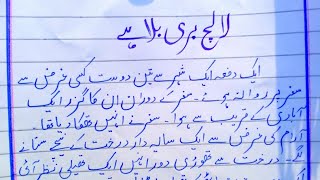 لالچ بری بلا ہے
ایک دفعہ ایک شہر سے تین دوست کسی غرض سے
سفر پر روانہ ہوئے۔ سفر کے دوران ان کا گزر ایک
آبادی کے قریب سے ہوا۔ سفر نے انہیں تھکا دیا تھا۔
آرام کی غرض سے ایک سایہ دار درخت کے نیچے سستانے
لگے۔ درخت سے تھوڑی دور انہیں ایک تھیلی نظر آئی